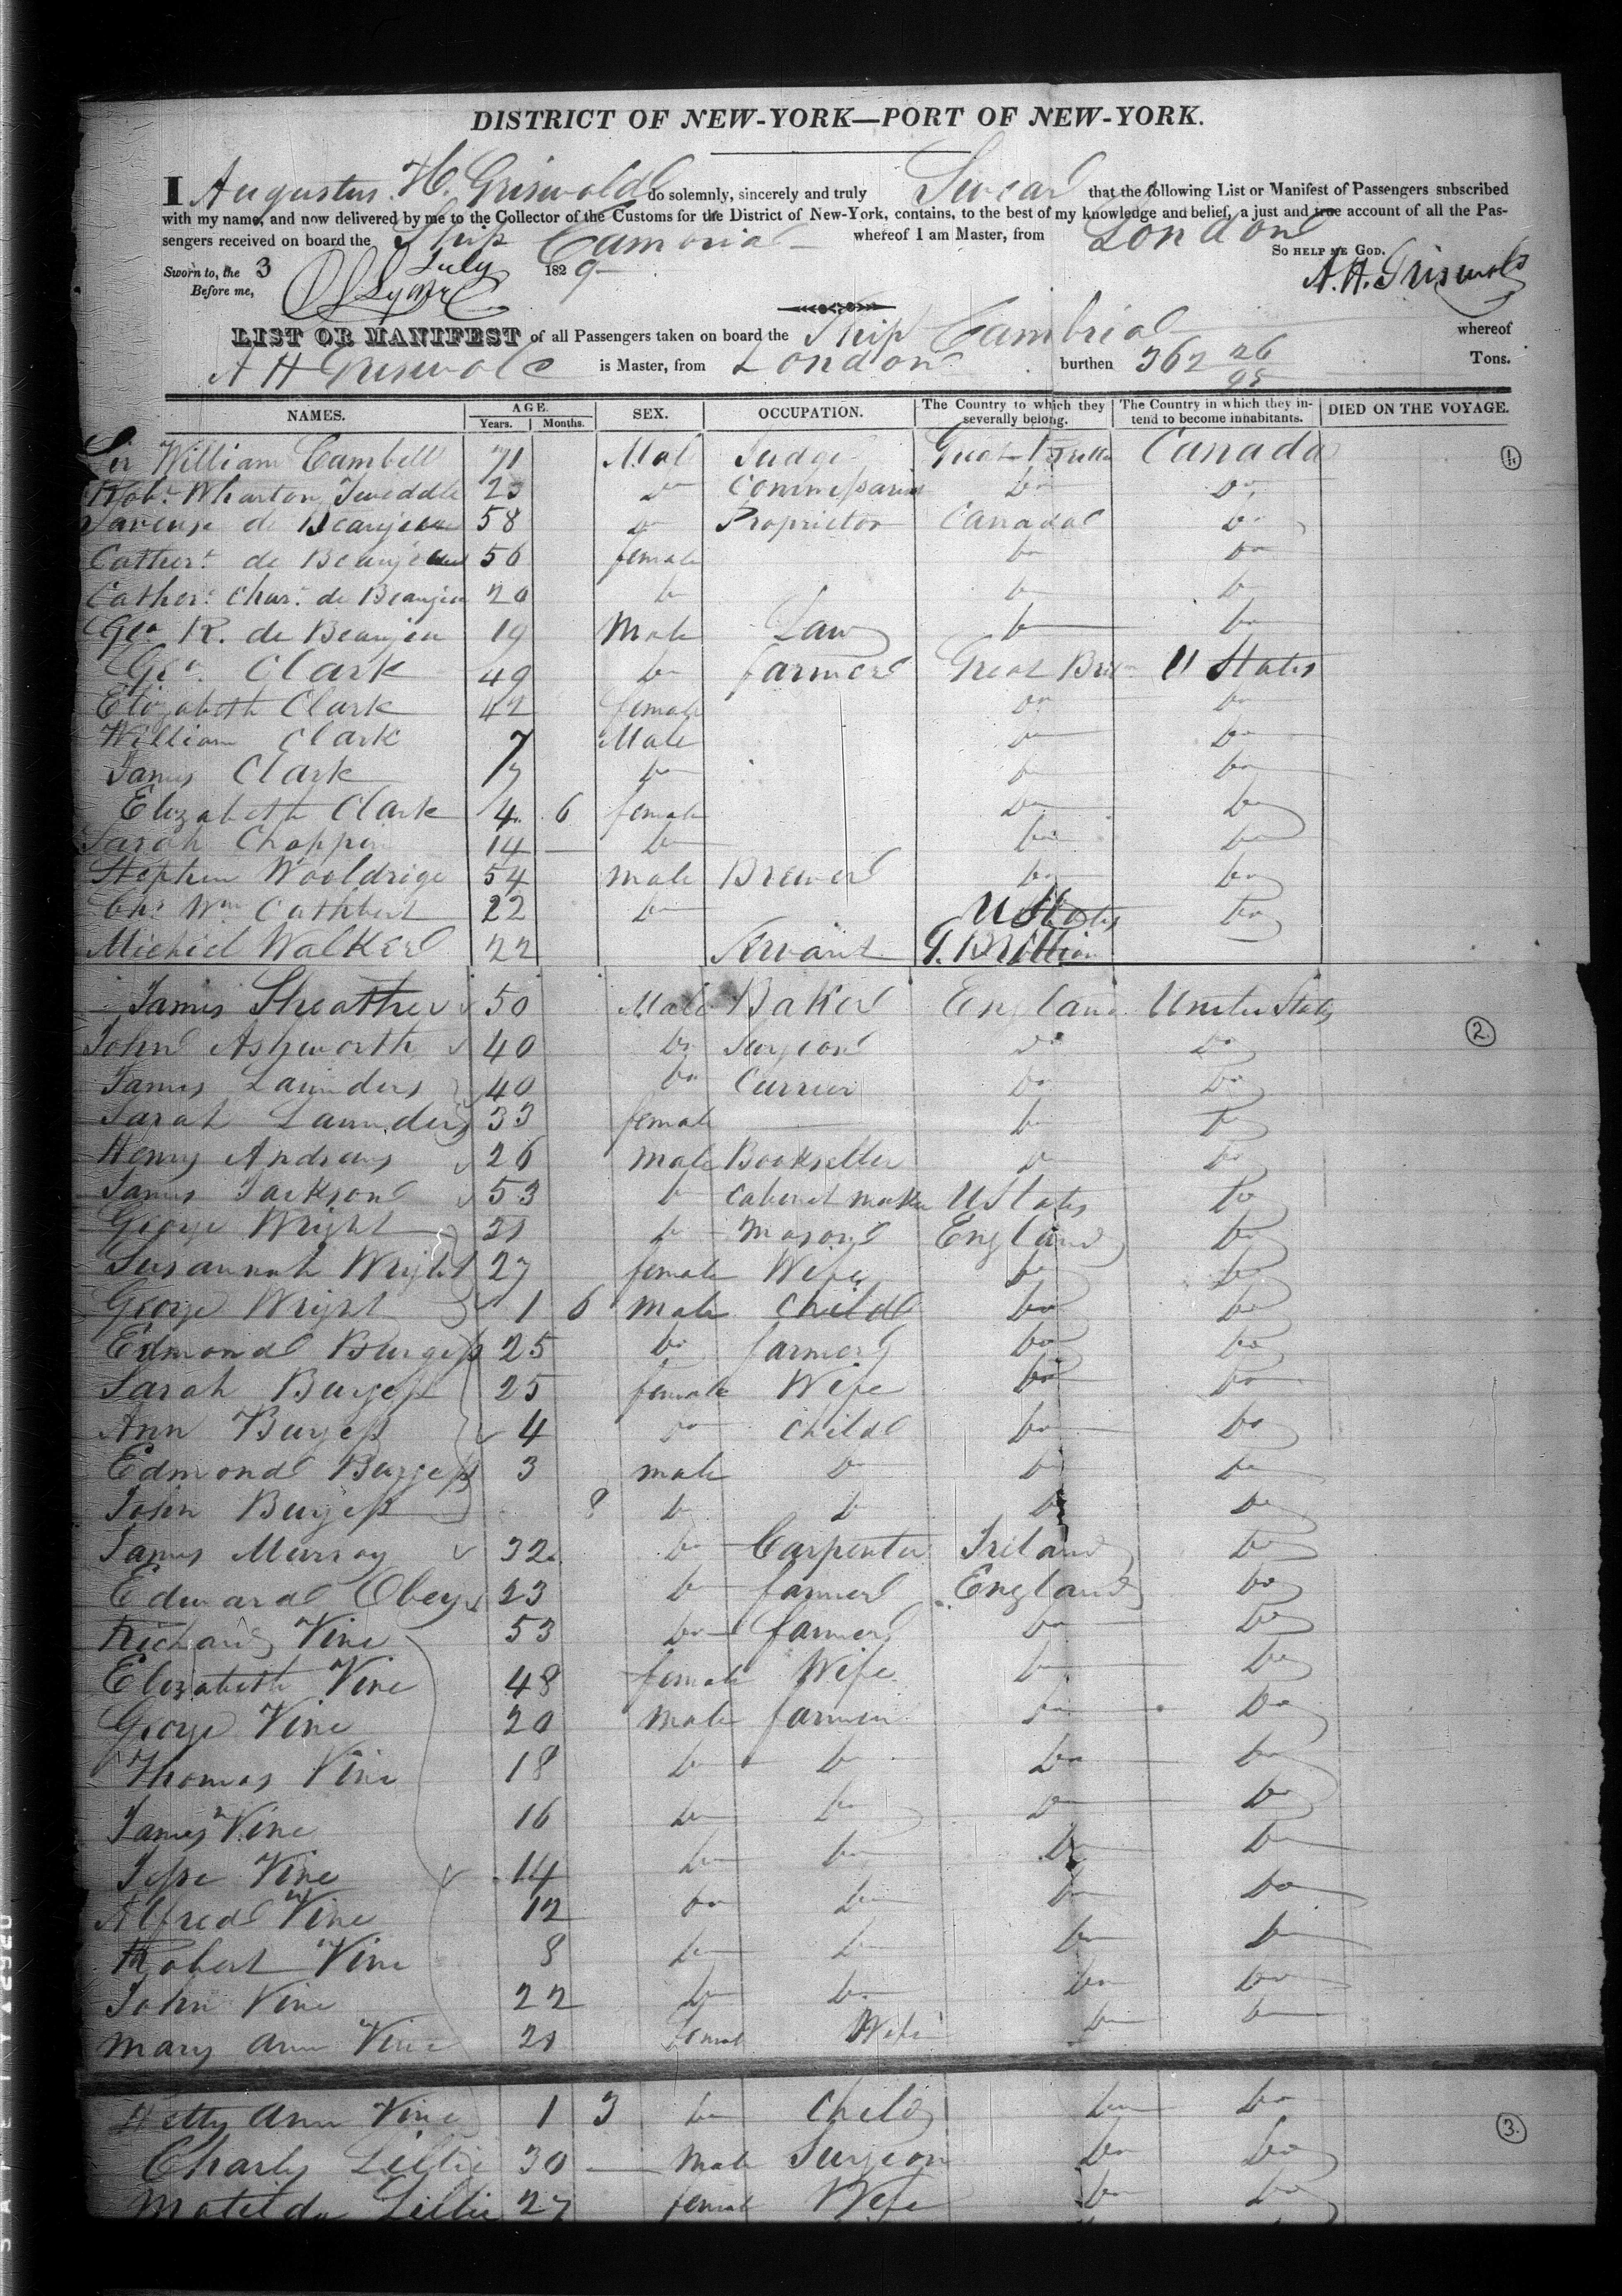 DISTRICT OF NEW-YORK—PORT OF NEW-YORK.
I Augustus H. Griswold do solemnly, sincerely and truly Swear that the following List or Manifest of Passengers subscribed
with my name, and now delivered by me to the Collector of the Customs for the District of New-York, contains, to the best of my knowledge and belief, a just and true account of all the Pas-
sengers received on board the Ship Cambria whereof I am Master, from London
So help me God.
Sworn to, the 3 July 1829
Before me,
A. H. Griswold
LIST OR MANIFEST of all Passengers taken on board the Ship Cambria whereof
A H Griswold is Master, from London burthen 362 26/95 Tons.
NAMES. AGE. Years. Months. SEX. OCCUPATION. The Country to which they severally belong. The Country in which they in-tend to become inhabitants. DIED ON THE VOYAGE.
Sir William Cambell 71 Male Judge Great Britta Canada 1.
Robt. Wharton Tweddle 23 Do Commissariat Do Do
de Beaujeau 58 Do Proprietor Canada Do
Cathert. de Beaujeau 56 female Do Do
Cather. Char. de Beaujeu 20 Do Do Do
Geo R. de Beaujeu 19 Male Law Do Do
Geo. Clark 49 Do farmer Great Brit U States
Elizabeth Clark 42 female Do Do
William Clark 7 Male Do Do
James Clark 5 Do Do Do
Elizabeth Clark 4 6 female Do Do
Sarah Choppin 14 Do Do Do
Stephen Wooldrige 54 male Brewer Do Do
Chs. Wm Cathbert 22 Do U States Do
Michiel Walker 22 Servant G. Brittian
James Sheather 50 Male Baker England United States 2.
John Ashworth 40 Do Surgeon Do Do
James Launders 40 Do Currier Do Do
Sarah Launders 33 female Do Do
Henry Andrews 26 Male Bookseller Do Do
James Jackson 53 Do Cabinet maker U States Do
George Wright 21 Do Mason England Do
Susannah Wright 27 female Wife Do Do
George Wright 1 6 Male Child Do Do
Edmond Burgess 25 Do farmer Do Do
Sarah Burgess 25 female Wife Do Do
Ann Burgess 4 Do Child Do Do
Edmond Burgess 3 male Do Do Do
John Burgess 8 Do Do Do Do
James Murray 32 Do Carpenter Ireland Do
Edward Obey 23 Do farmer England Do
Richard Vine 53 Do farmer Do Do
Elizabeth Vine 48 female Wife Do Do
George Vine 20 Male farmer Do Do
Thomas Vine 18 Do Do Do Do
James Vine 16 Do Do Do Do
Jesse Vine 14 Do Do Do Do
Alfred Vine 12 Do Do Do Do
Robert Vine 8 Do Do Do Do
John Vine 22 Do Do Do Do
Mary Ann Vine 21 Female Wife Do Do
Betty Ann Vine 1 3 Do Child Do Do 3.
Charles Lillie 30 Male Surgeon Do Do
Matilda Lillie 27 female Wife Do Do